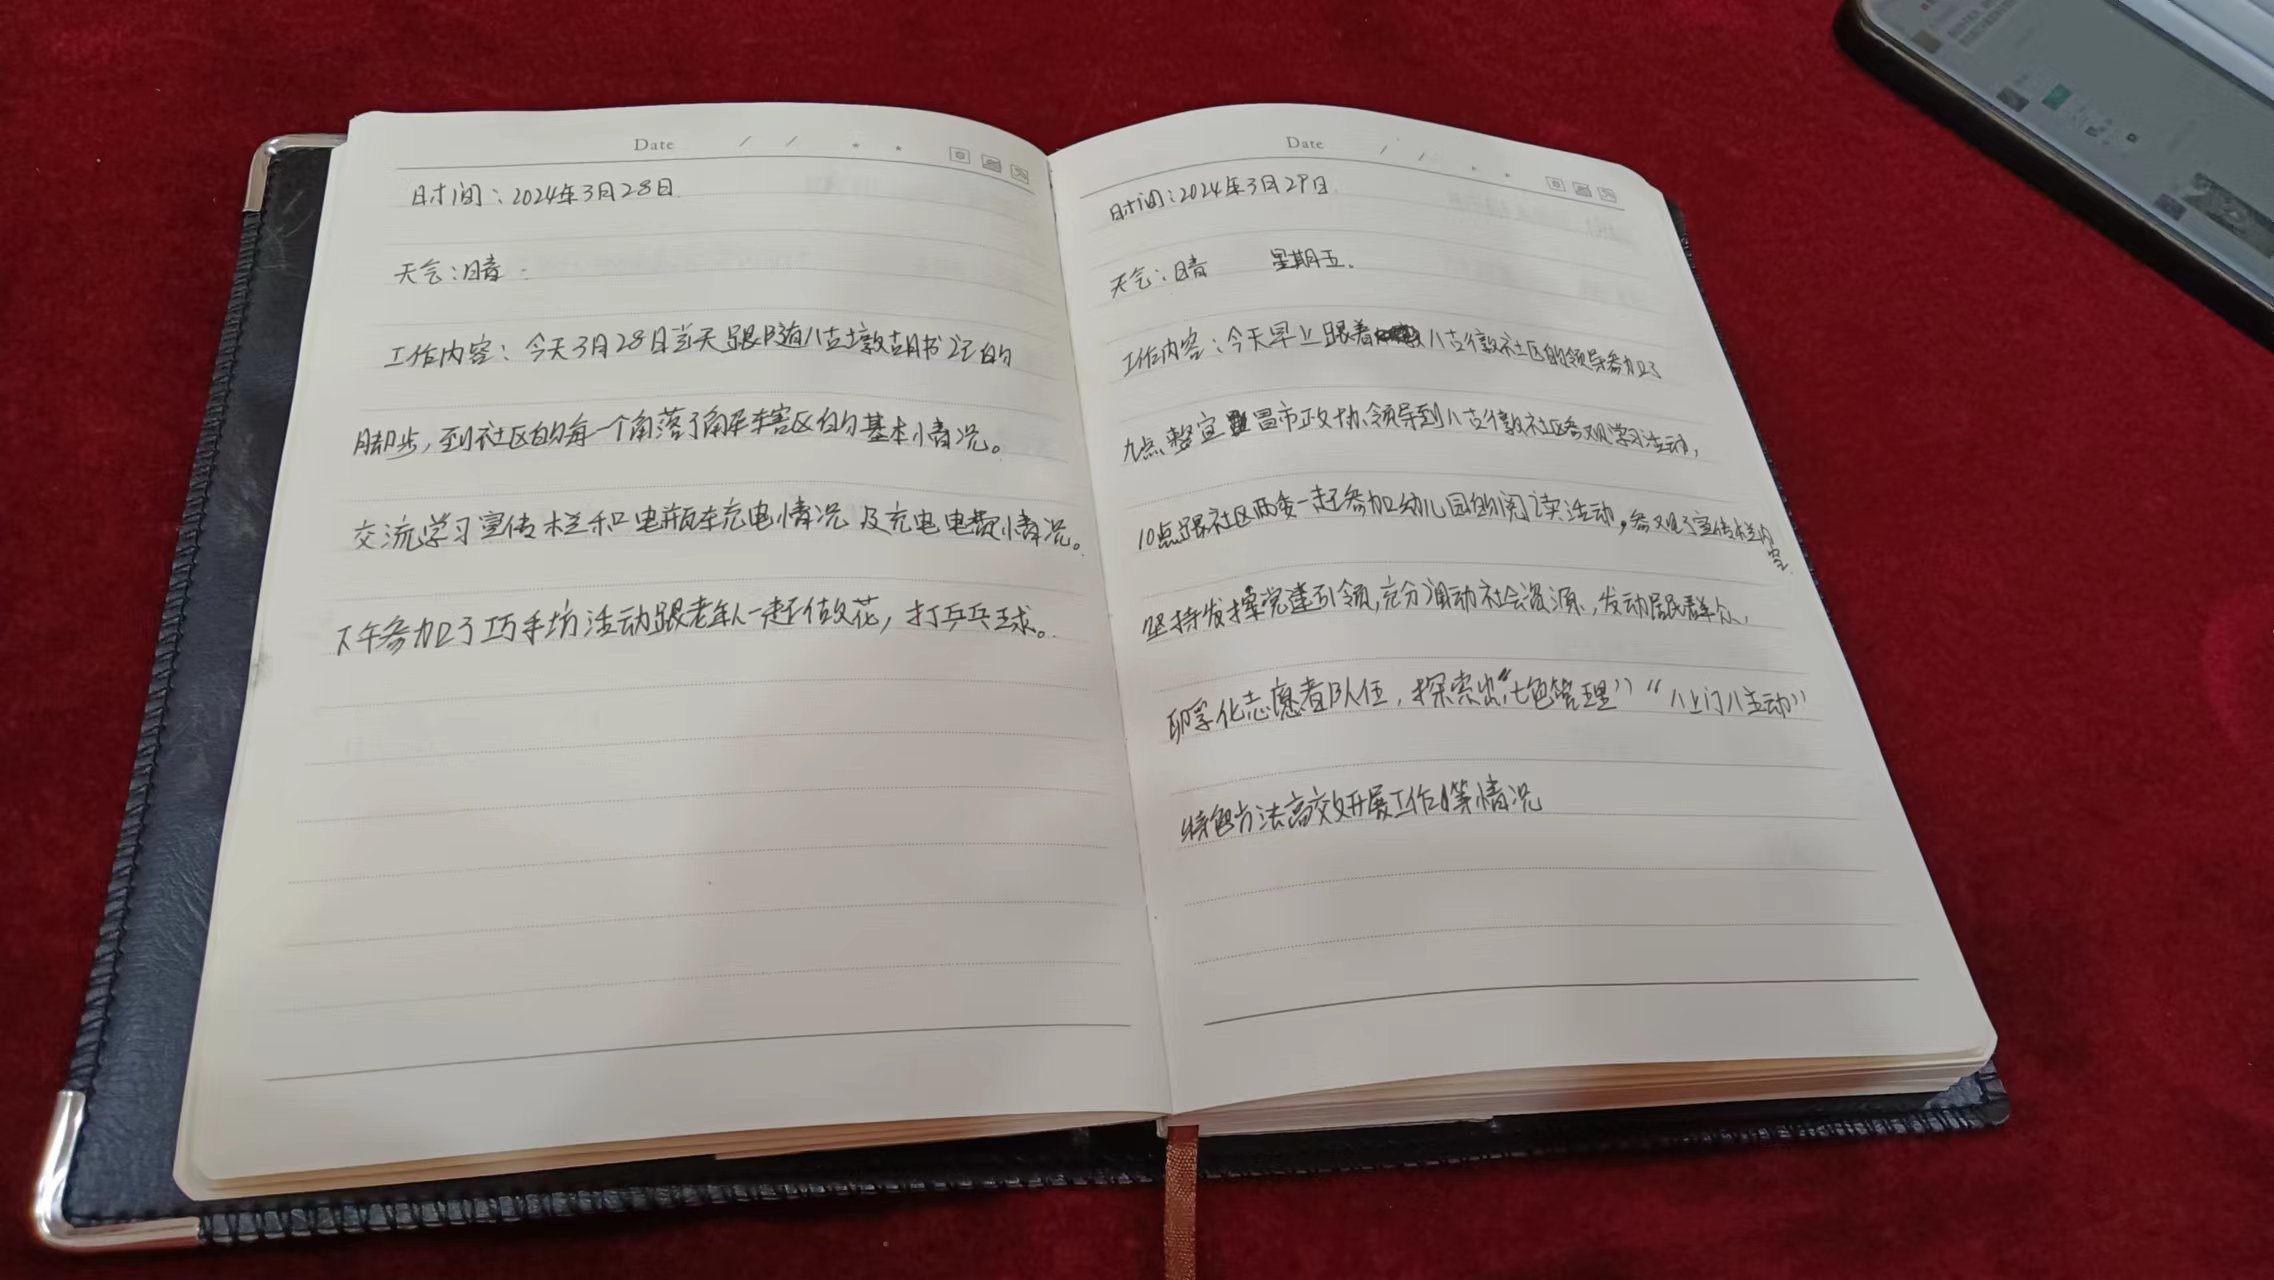 Date / /
时间：2024年3月28日
天气：晴
工作内容：今天3月28日当天跟随八古墩胡书记的
脚步，到社区的每一个角落了解辖区的基本情况。
交流学习宣传栏和电瓶车充电情况及充电电费情况。
下午参加了巧手坊活动跟老年人一起做花，打乒乓球。
Date / /
时间：2024年3月29日
天气：晴 星期五.
工作内容：今天早上跟着八古墩社区的领导参加了
九点整宜昌市政协领导到八古墩社区参观学习活动，
10点跟社区两委一起参加幼儿园的阅读活动，参观了宣传栏内容.
坚持发挥党建引领，充分调动社会资源，发动居民群众，
孵化志愿者队伍，探索出“七色管理”“八上门八主动”
特色方法高效开展工作等情况